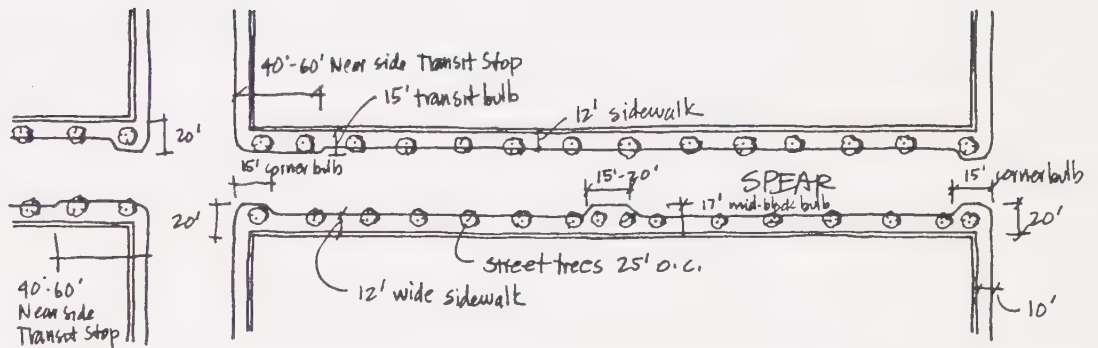 40'-60' Near side Transit Stop
15' transit bulb
12' sidewalk
20'
15' corner bulb
15'-20'
SPEAR
15' corner bulb
20'
17' mid-block bulb
20'
street trees 25' o.c.
12' wide sidewalk
40'-60'
Near side
Transit Stop
10'